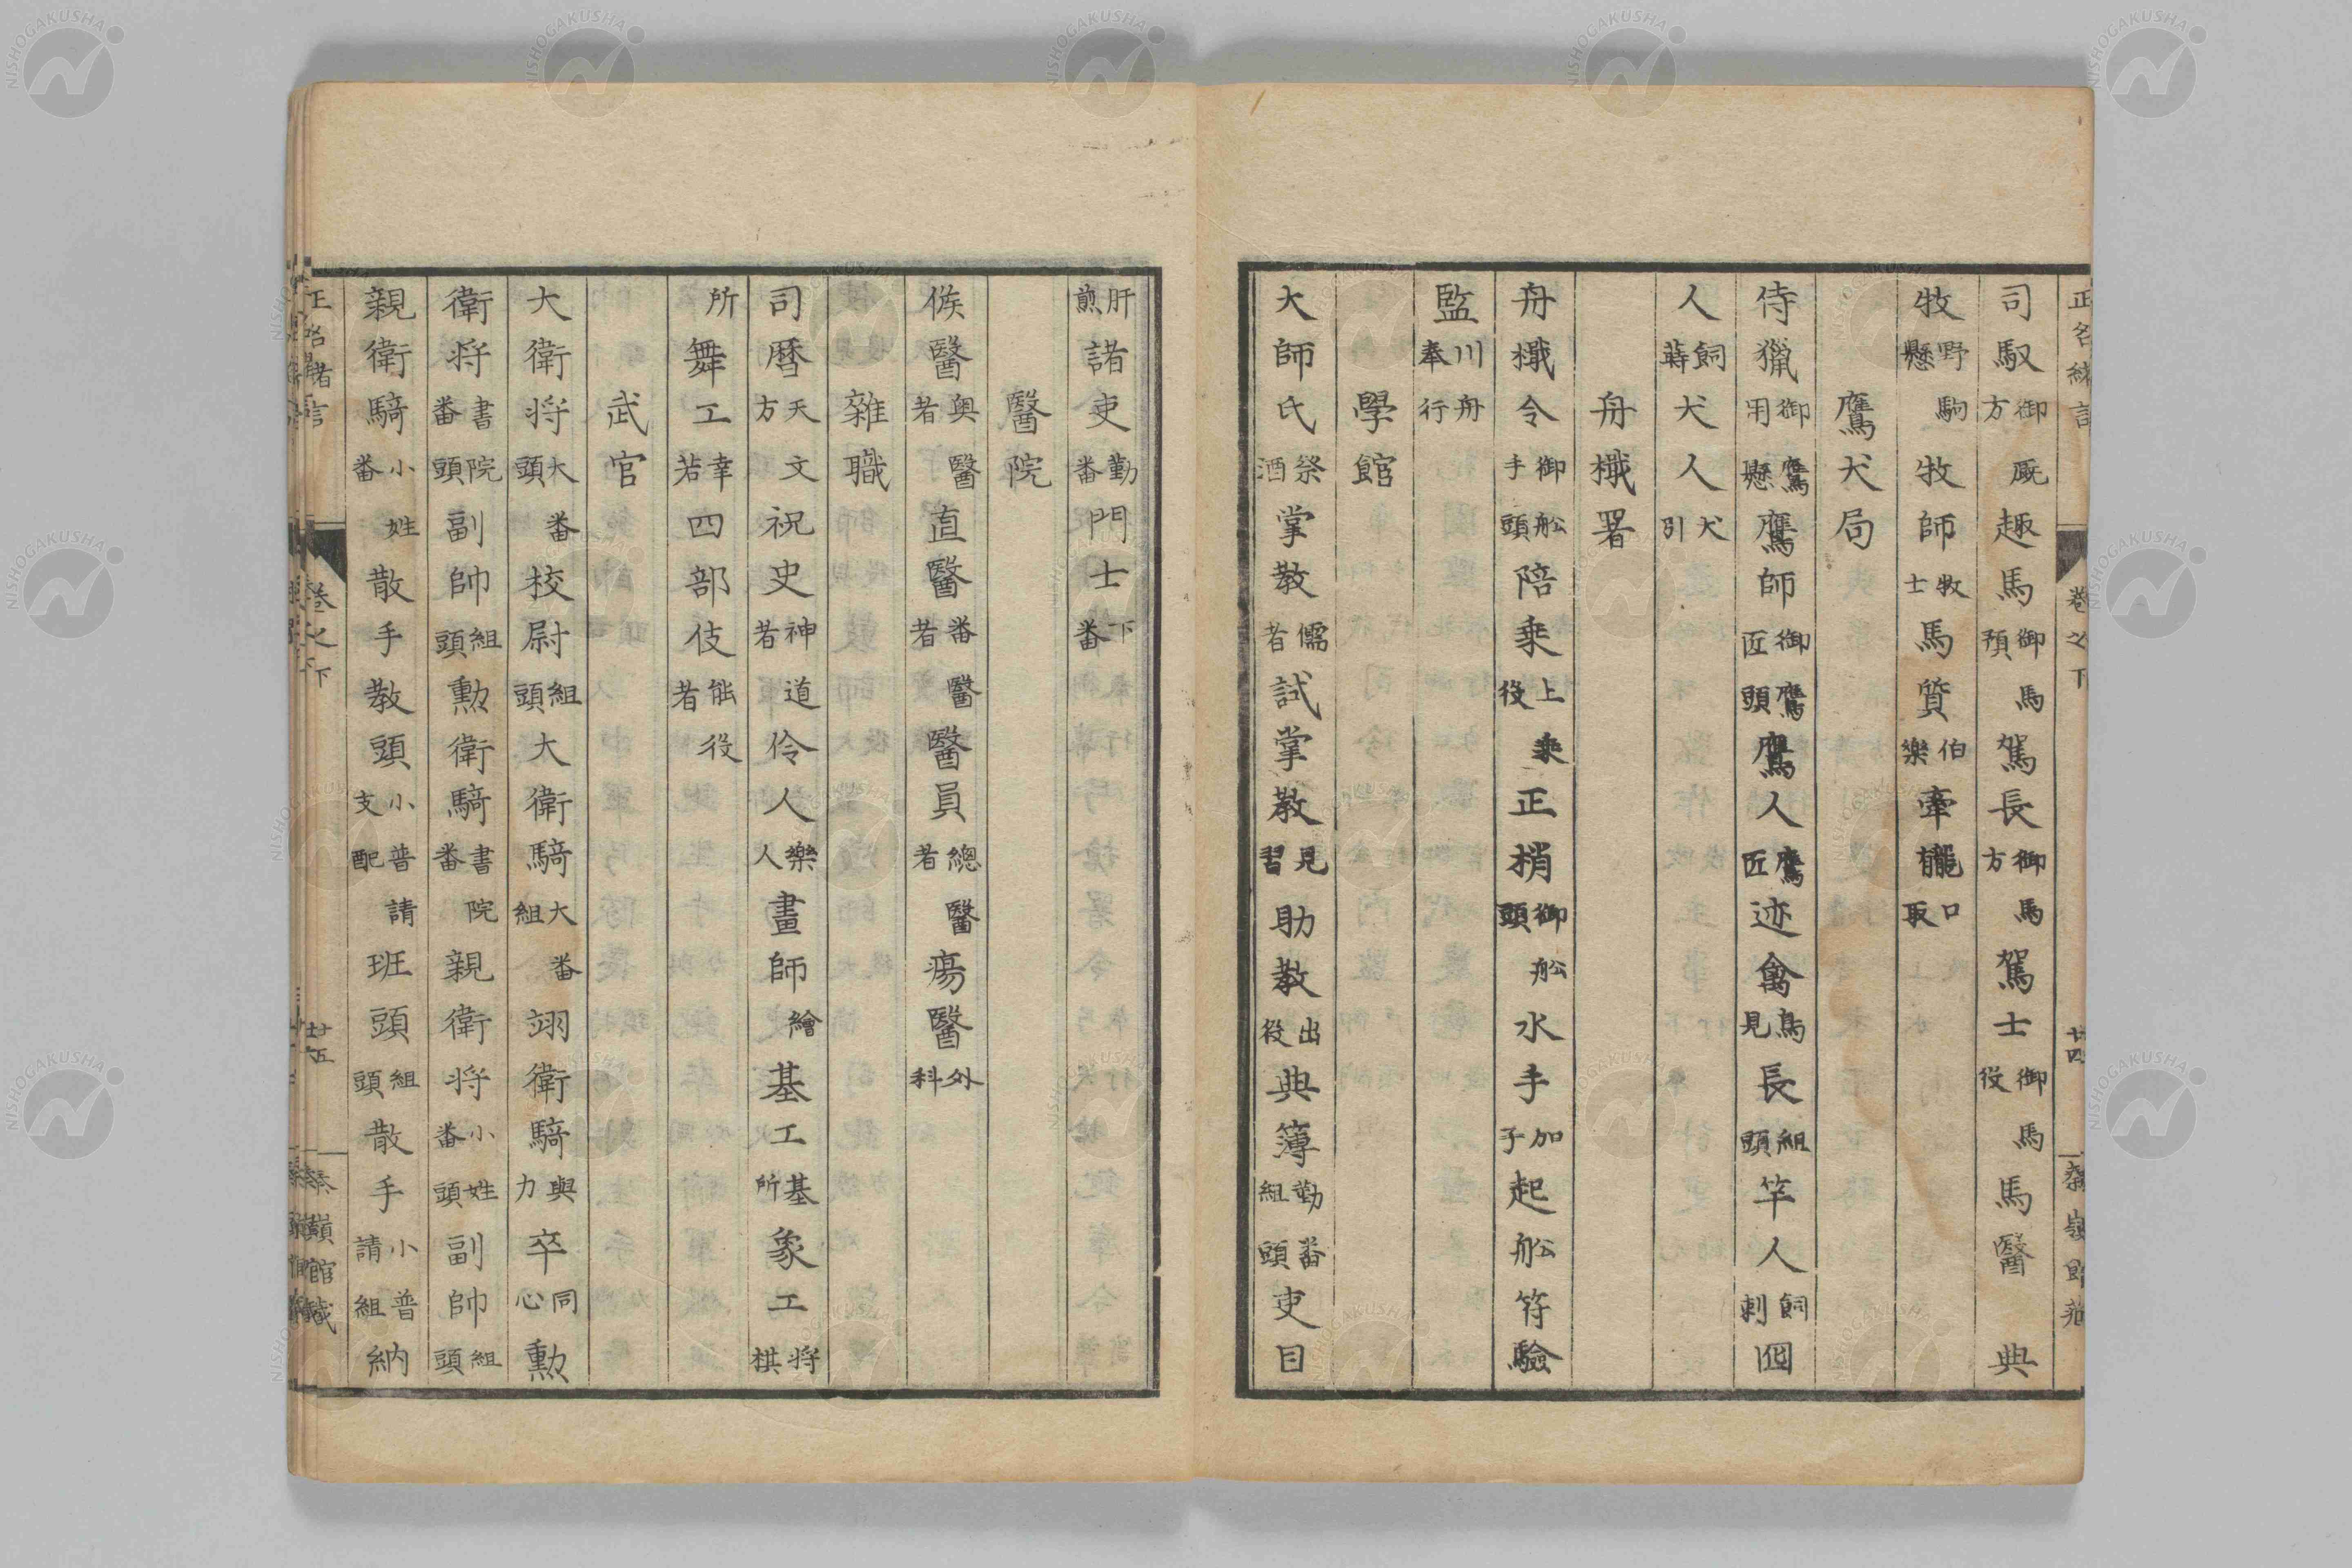 正名緒言 卷之下 廿四 泰嶺館藏
司馭御厩方趣馬御馬預駕長御馬方駕士御馬役馬醫 典
牧野駒懸牧師牧士馬質伯樂牽龓口取
鷹犬局
侍獵御鷹用懸鷹師御鷹匠頭鷹人鷹匠迹禽鳥見長組頭竿人餌刺囮
人飼蒔犬人犬引
舟檝署
舟檝令御舩手頭陪乗上乗役正梢御舩頭水手加子起舩符驗
監川舟奉行
學館
大師氏祭酒掌教儒者試掌教見習助教出役典簿勤番組頭吏目
肝煎諸吏勤番門士下番
醫院
候醫奥醫者直醫番醫者醫員總醫者瘍醫外科
雜職
司暦天文方祝史神道者伶人樂人畫師繪基工基所象工将棋
所舞工幸若四部伎能役者
武官
大衛将大番頭校尉組頭大衛騎大番組翊衛騎與力卒同心勲
衛将書院番頭副帥組頭勲衛騎書院番親衛将小姓番頭副帥組頭
親衛騎小姓番散手教頭小普請支配班頭組頭散手小普請組納
正名緒言 卷之下 廿五 泰嶺館藏